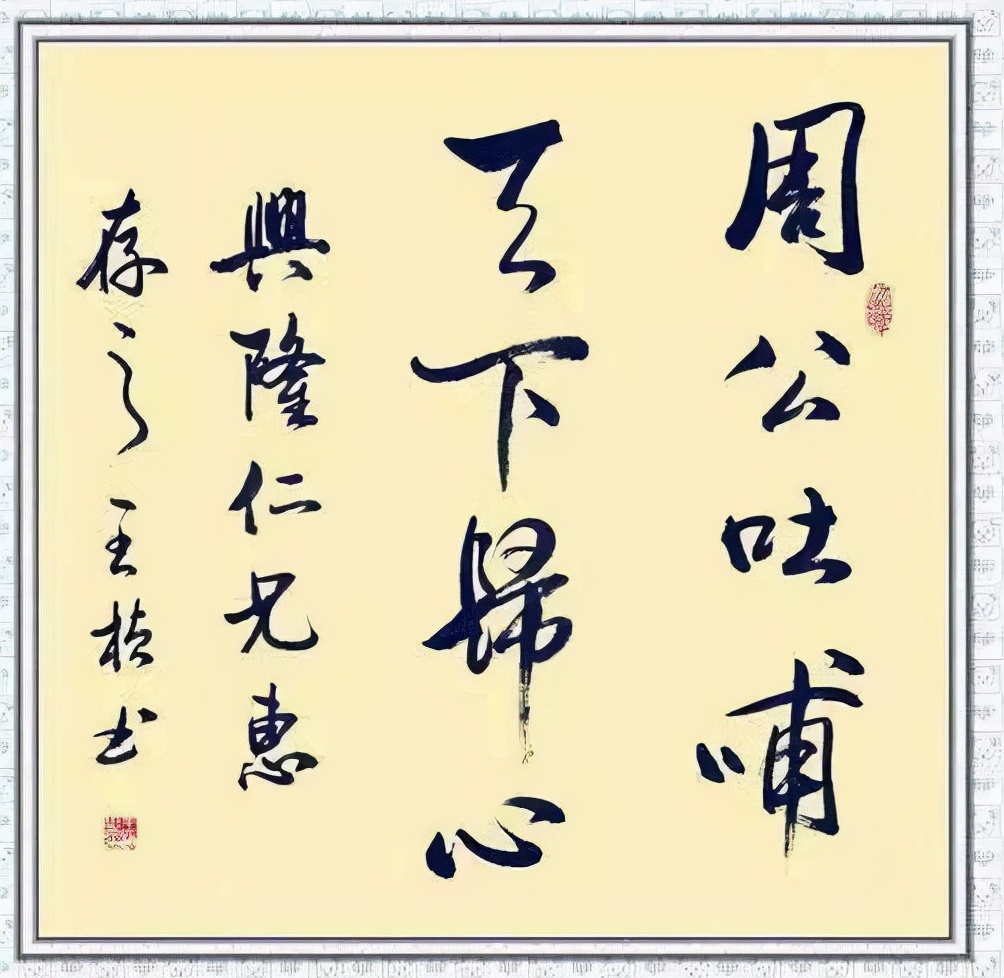 周公吐哺
天下歸心
興隆仁兄惠
存之 王楨书